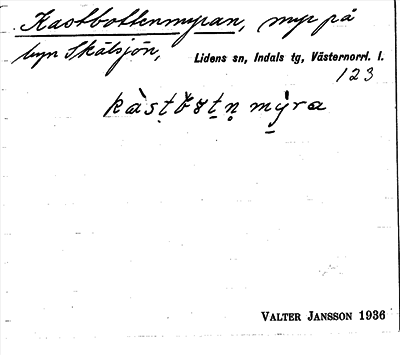 Kastbottenmyran, myr på
byn Skålsjön, Lidens sn, Indals tg, Västernorrl. l.
123
VALTER JANSSON 1936